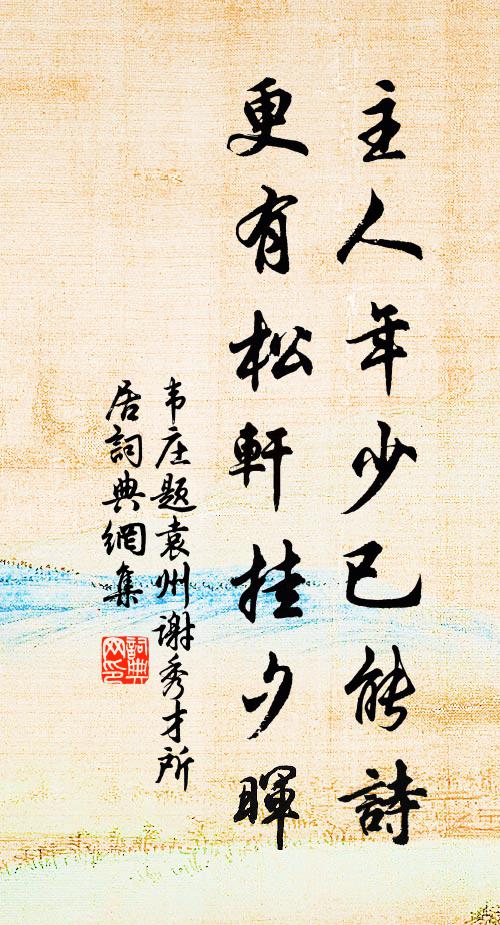 主人年少已能詩
更有松軒挂夕暉
韦庄题袁州谢秀才所
居詞典網集
詞典
网印